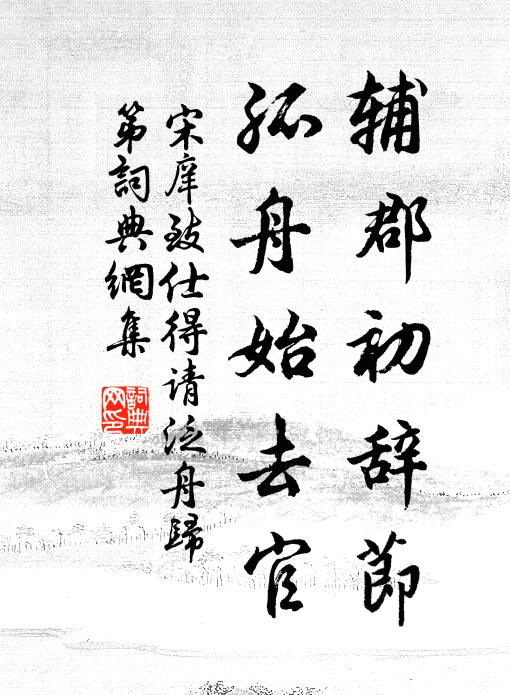 辅郡初辞節
孤舟始去官
宋庠致仕得请泛舟歸
第詞典網集
詞典
网印